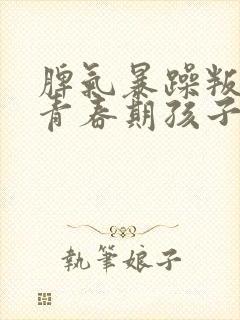 脾氣暴躁叛
青春期孩子
執筆娘子